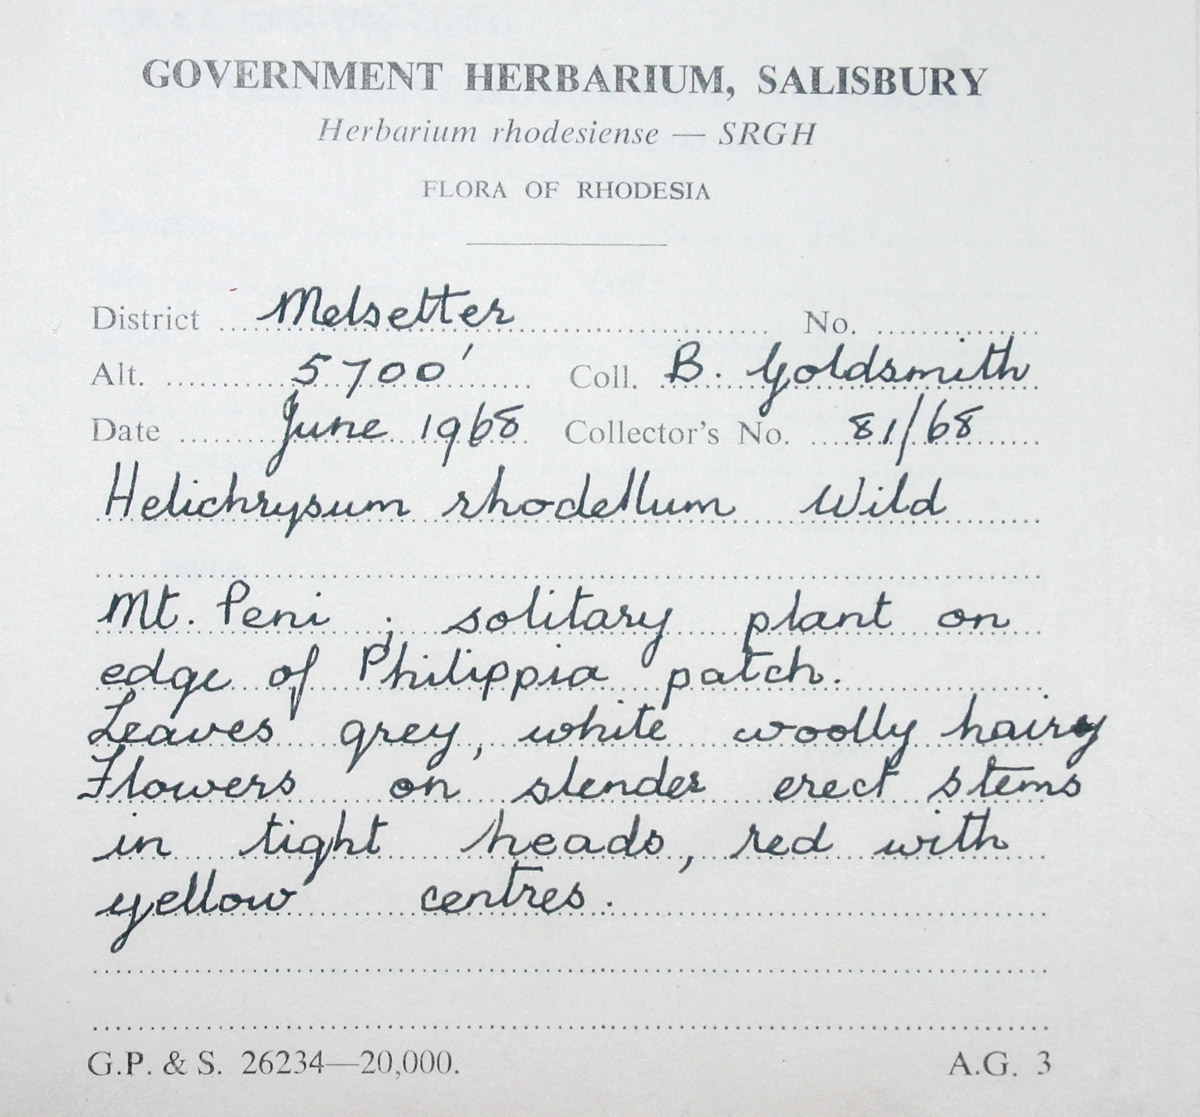 GOVERNMENT HERBARIUM, SALISBURY
Herbarium rhodesiense — SRGH
FLORA OF RHODESIA
District Melsetter No.
Alt. 5700' Coll. B. Goldsmith
Date June 1968 Collector's No. 81/68
Helichrysum rhodellum Wild
Mt. Peni ; solitary plant on
edge of Philippia patch.
Leaves grey, white woolly hairy
Flowers on slender erect stems
in tight heads, red with
yellow centres.
G.P. & S. 26234—20,000. A.G. 3